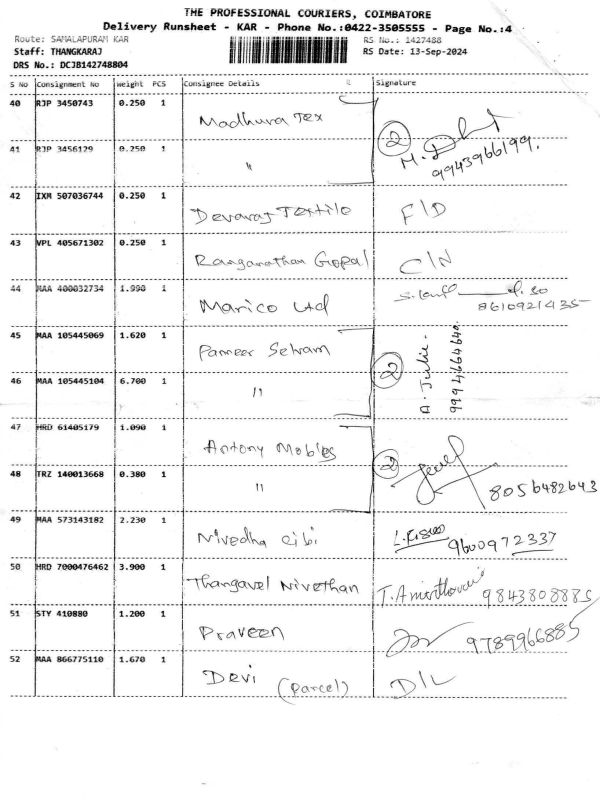 THE PROFESSIONAL COURIERS, COIMBATORE
Delivery Runsheet - KAR - Phone No.:0422-3505555 - Page No.:4
Route: SAMALAPURAM KAR RS No.: 1427488
Staff: THANGKARAJ RS Date: 13-Sep-2024
DRS No.: DCJB142748804
S No Consignment No Weight PCS Consignee Details Signature
40 RJP 3450743 0.250 1 Madhura Tex
41 RJP 3456129 0.250 1 " 2 9943966199.
42 IXM 507036744 0.250 1 Devaraj Textile F/D
43 VPL 405671302 0.250 1 Ranganathan Gopal C/N
44 MAA 400032734 1.990 1 Marico Ltd 8610921435
45 MAA 105445069 1.620 1 Panneer Selvam
46 MAA 105445104 6.700 1 " 2 A. Julie. 9994664640
47 HRD 61405179 1.090 1 Antony Mobiles
48 TRZ 140013668 0.380 1 " 2 8056482643
49 MAA 573143182 2.230 1 Nivedha Cibi 9600972337
50 HRD 7000476462 3.900 1 Thangavel Nivethan 9843808885
51 STY 410880 1.200 1 Praveen 9789966885
52 MAA 866775110 1.670 1 Devi (Parcel) D/L